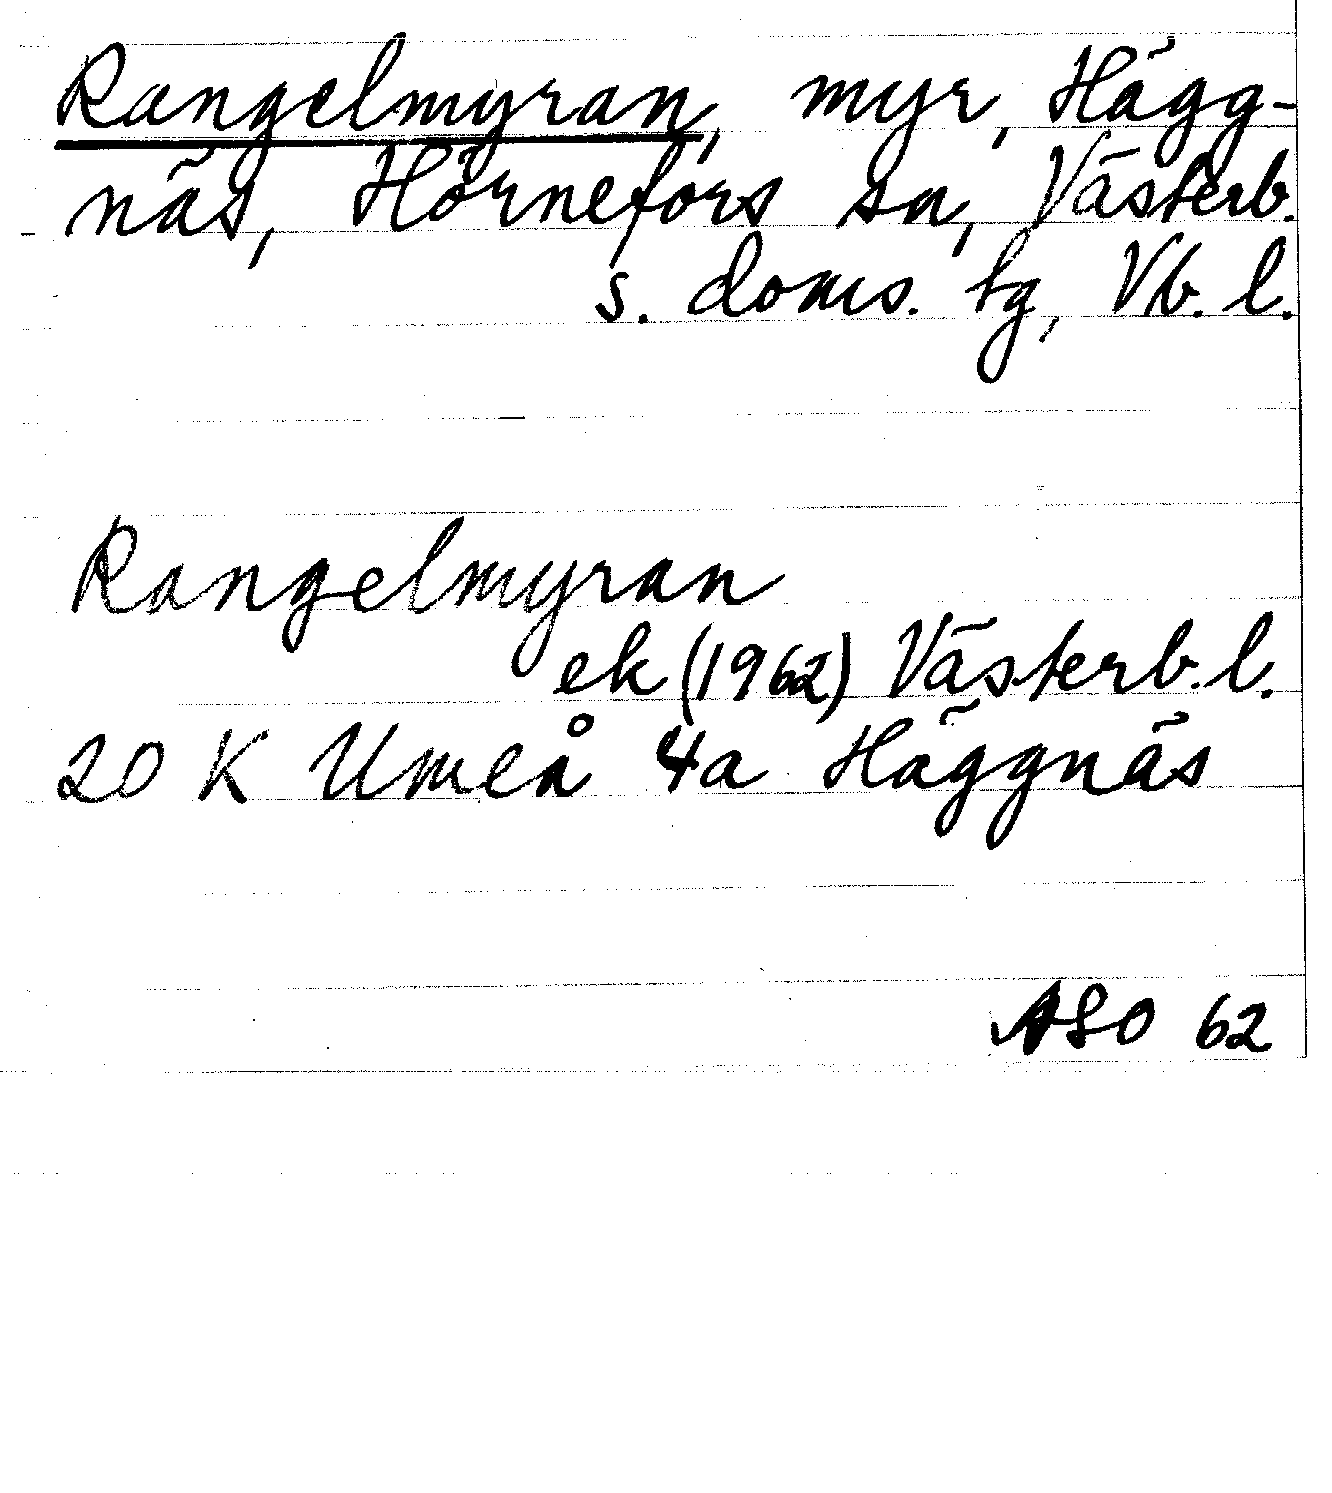 Rangelmyran, myr, Hägg-
näs, Hörnefors sn, Västerb.
s. doms. tg, Vb. l.
Rangelmyran
ek (1962) Västerb. l.
20 K Umeå 4a Häggnäs
ASO 62